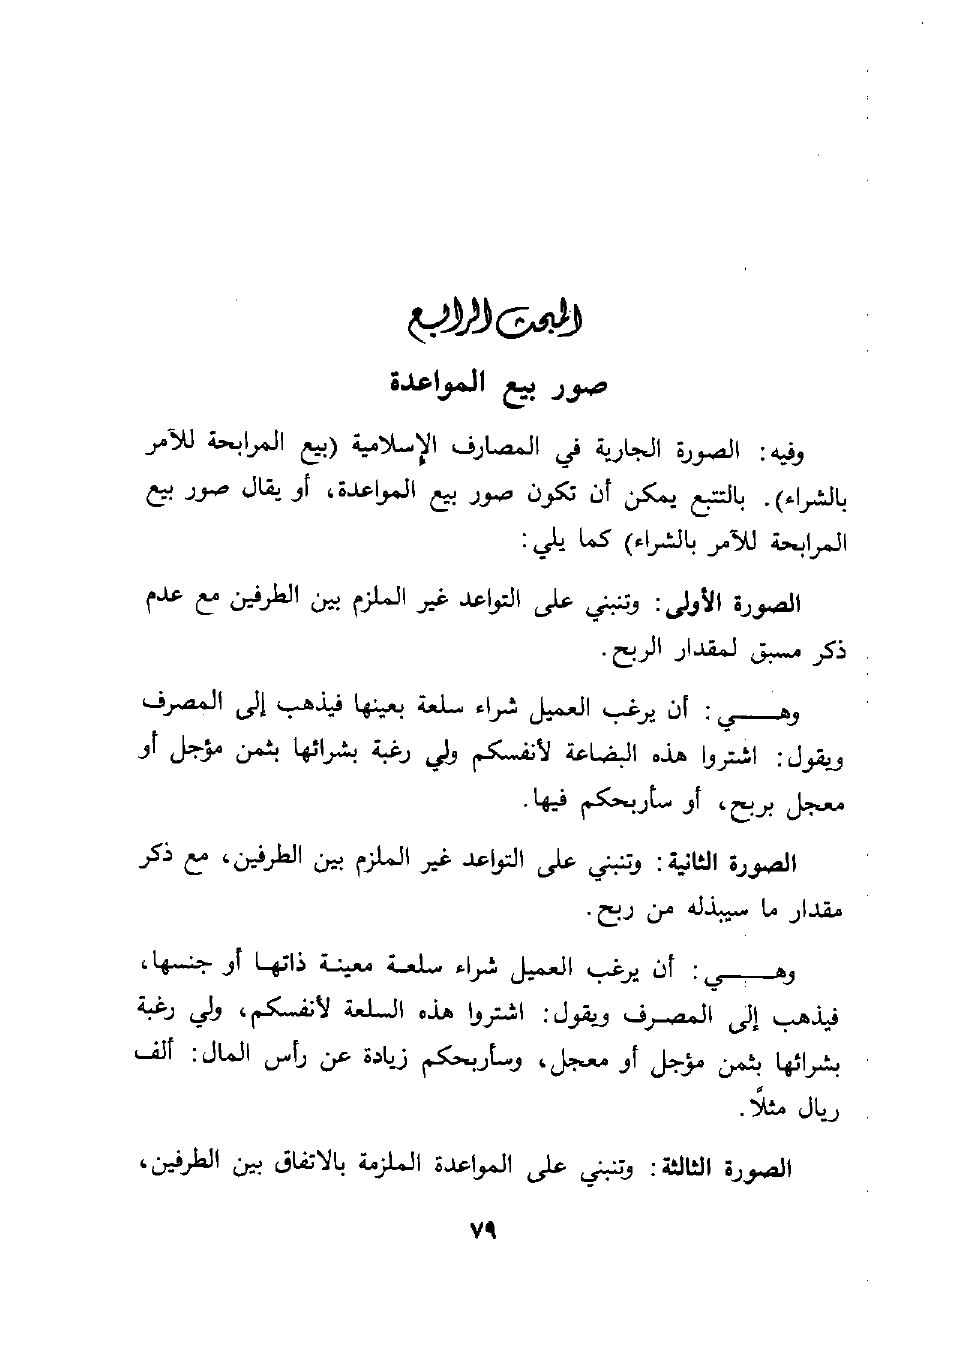 المبحث الرابع
صور بيع المواعدة
وفيه: الصورة الجارية في المصارف الإسلامية (بيع المرابحة للآمر
بالشراء). بالتتبع يمكن أن تكون صور بيع المواعدة، أو يقال صور بيع
المرابحة للآمر بالشراء) كما يلي:
الصورة الأولى: وتنبني على التواعد غير الملزم بين الطرفين مع عدم
ذكر مسبق لمقدار الربح.
وهـــي: أن يرغب العميل شراء سلعة بعينها فيذهب إلى المصرف
ويقول: اشتروا هذه البضاعة لأنفسكم ولي رغبة بشرائها بثمن مؤجل أو
معجل بربح، أو سأربحكم فيها.
الصورة الثانية: وتنبني على التواعد غير الملزم بين الطرفين، مع ذكر
مقدار ما سيبذله من ربح.
وهـــي: أن يرغب العميل شراء سلعـة معينـة ذاتهـا أو جنسها،
فيذهب إلى المصرف ويقول: اشتروا هذه السلعة لأنفسكم، ولي رغبة
بشرائها بثمن مؤجل أو معجل، وسأربحكم زيادة عن رأس المال: ألف
ريال مثلاً.
الصورة الثالثة: وتنبني على المواعدة الملزمة بالاتفاق بين الطرفين،
٧٩